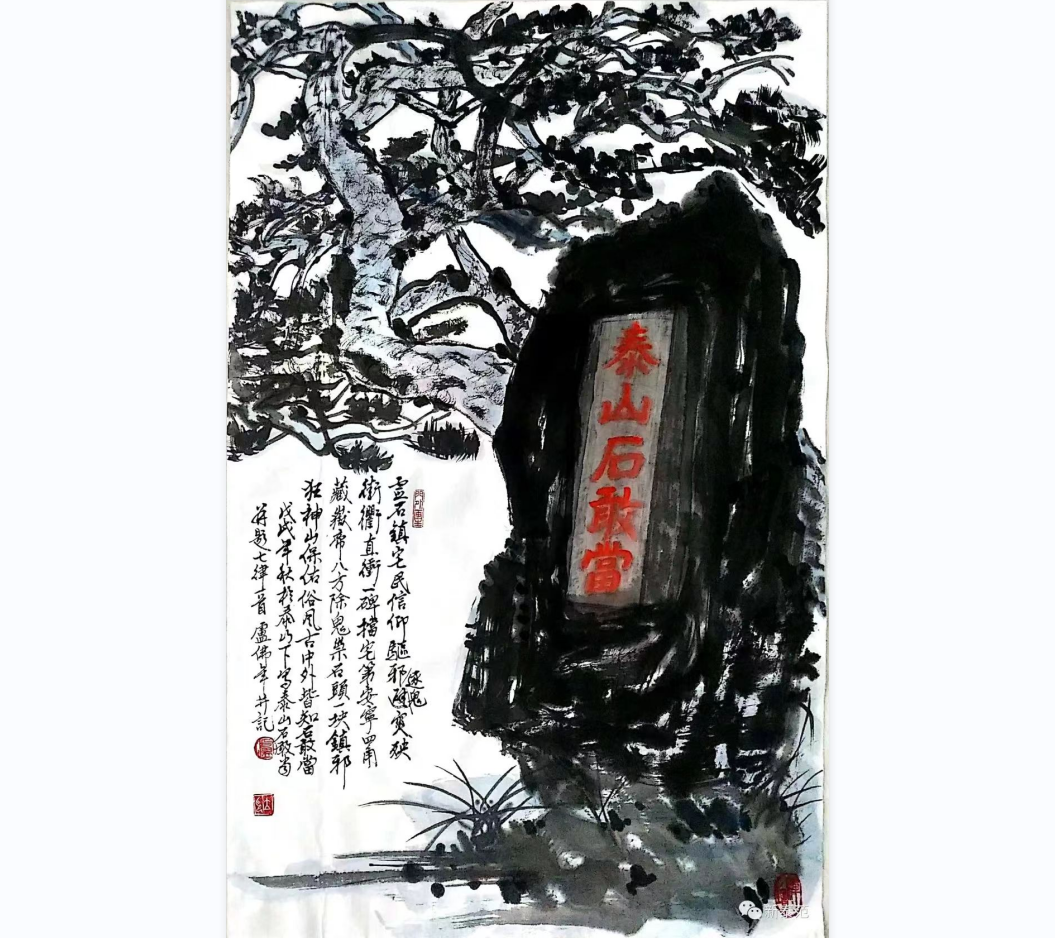 泰山石敢當
灵石鎮宅民信仰驅邪避灾殃
逐鬼
街衢直衝一碑擋宅第安寧四角
藏嶽帝八方除鬼祟石頭一块鎮邪
狂神山保佑俗風古中外皆知石敢當
戊戌年秋於泰山下写泰山石敢当
并題七律一首盧佛年并記
新泰苑